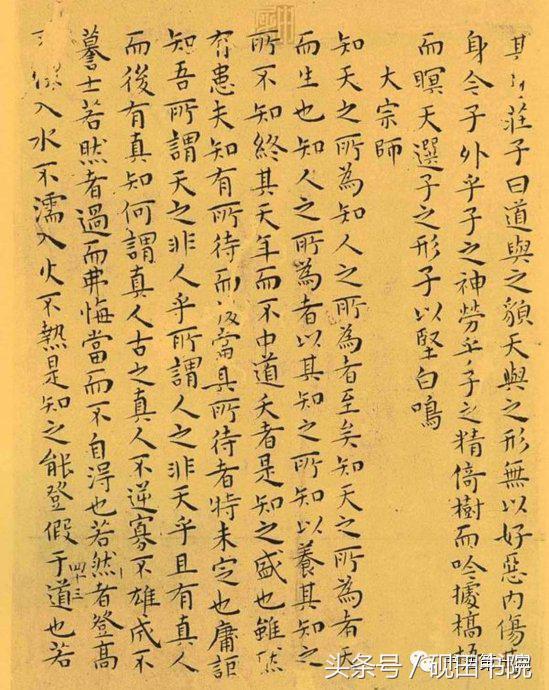 其莊子曰道與之貌天與之形無以好惡內傷其
身今子外乎子之神勞乎子之精倚樹而吟據槁梧
而瞑天選子之形子以堅白鳴
大宗師
知天之所為知人之所為者至矣知天之所為者天
而生也知人之所為者以其知之所知以養其知之
所不知終其天年而不中道夭者是知之盛也雖然
有患夫知有所待而後當其所待者特未定也庸詎
知吾所謂天之非人乎所謂人之非天乎且有真人
而後有真知何謂真人古之真人不逆寡不雄成不
謩士若然者過而弗悔當而不自得也若然者登高
慄入水不濡入火不熱是知之能登假于道也若
四十三
头条号／砚田书院